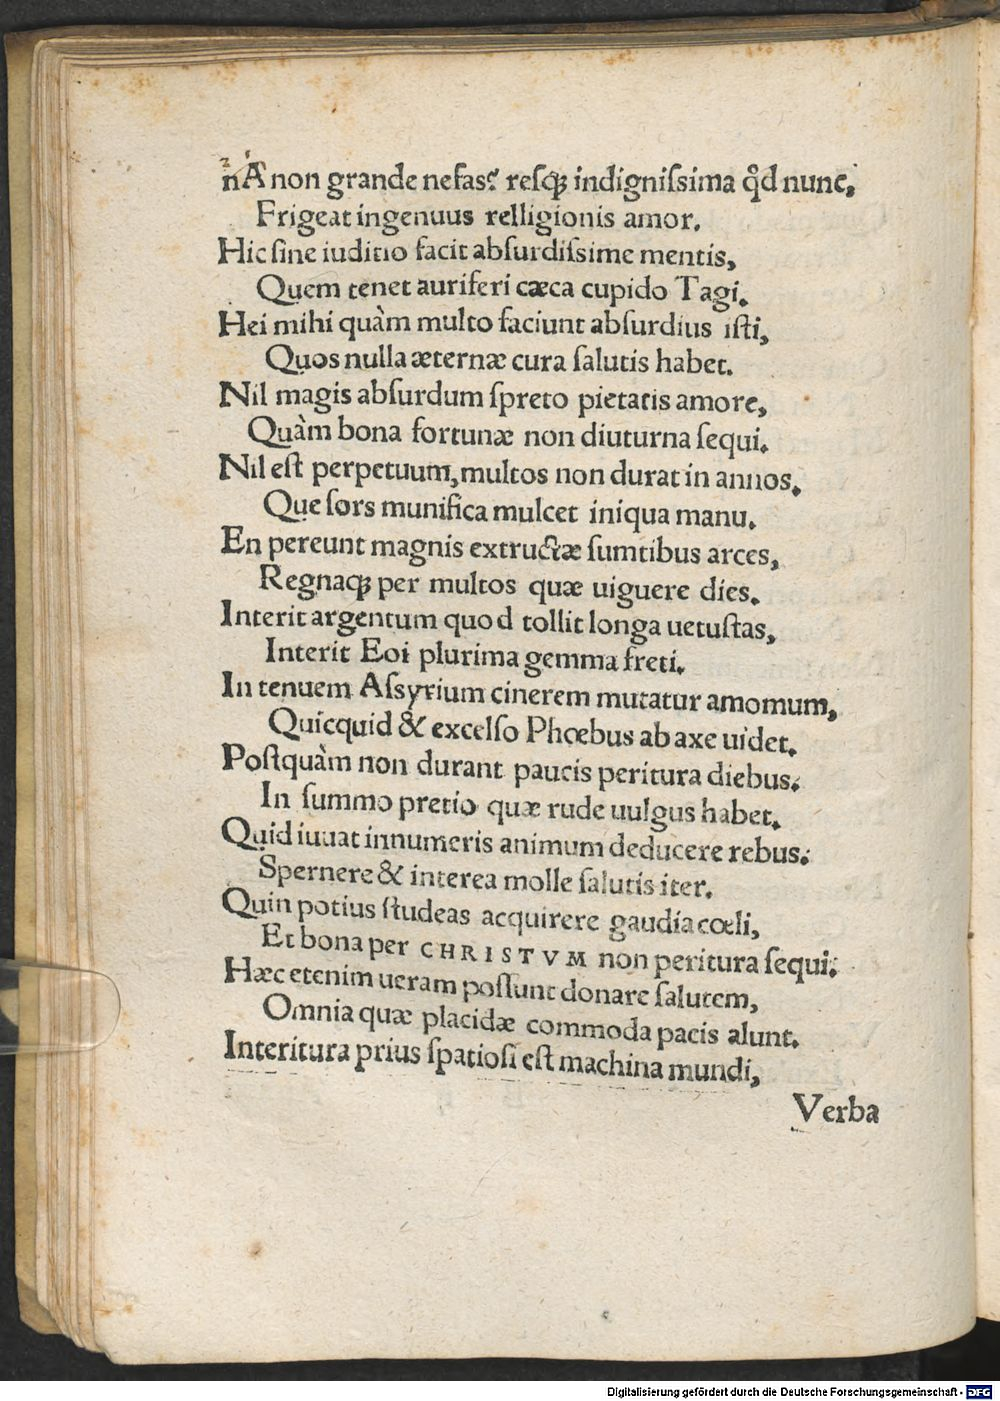 nA non grande nefas? resq́ꝫ indignissima q̊d nunc,
Frigeat ingenuus relligionis amor.
Hic sine iuditio facit absurdissime mentis,
Quem tenet auriferi cæca cupido Tagi.
Hei mihi quàm multo faciunt absurdius isti,
Quos nulla æternæ cura salutis habet.
Nil magis absurdum spreto pietatis amore,
Quàm bona fortunæ non diuturna sequi.
Nil est perpetuum, multos non durat in annos.
Que sors munifica mulcet iniqua manu.
En pereunt magnis extructæ sumtibus arces,
Regnaqꝫ per multos quæ uiguere dies.
Interit argentum quod tollit longa uetustas,
Interit Eoi plurima gemma freti.
In tenuem Assyrium cinerem mutatur amomum,
Quicquid & excelso Phœbus ab axe uidet.
Postquàm non durant paucis peritura diebus:
In summo pretio quæ rude uulgus habet.
Quid iuuat innumeris animum deducere rebus:
Spernere & interea molle salutis iter.
Quin potius studeas acquirere gaudia cœli,
Et bona per CHRISTVM non peritura sequi:
Hæc etenim ueram possunt donare salutem,
Omnia quæ placidæ commoda pacis alunt.
Interitura prius spatiosi est machina mundi,
Verba
Digitalisierung gefördert durch die Deutsche Forschungsgemeinschaft - DFG